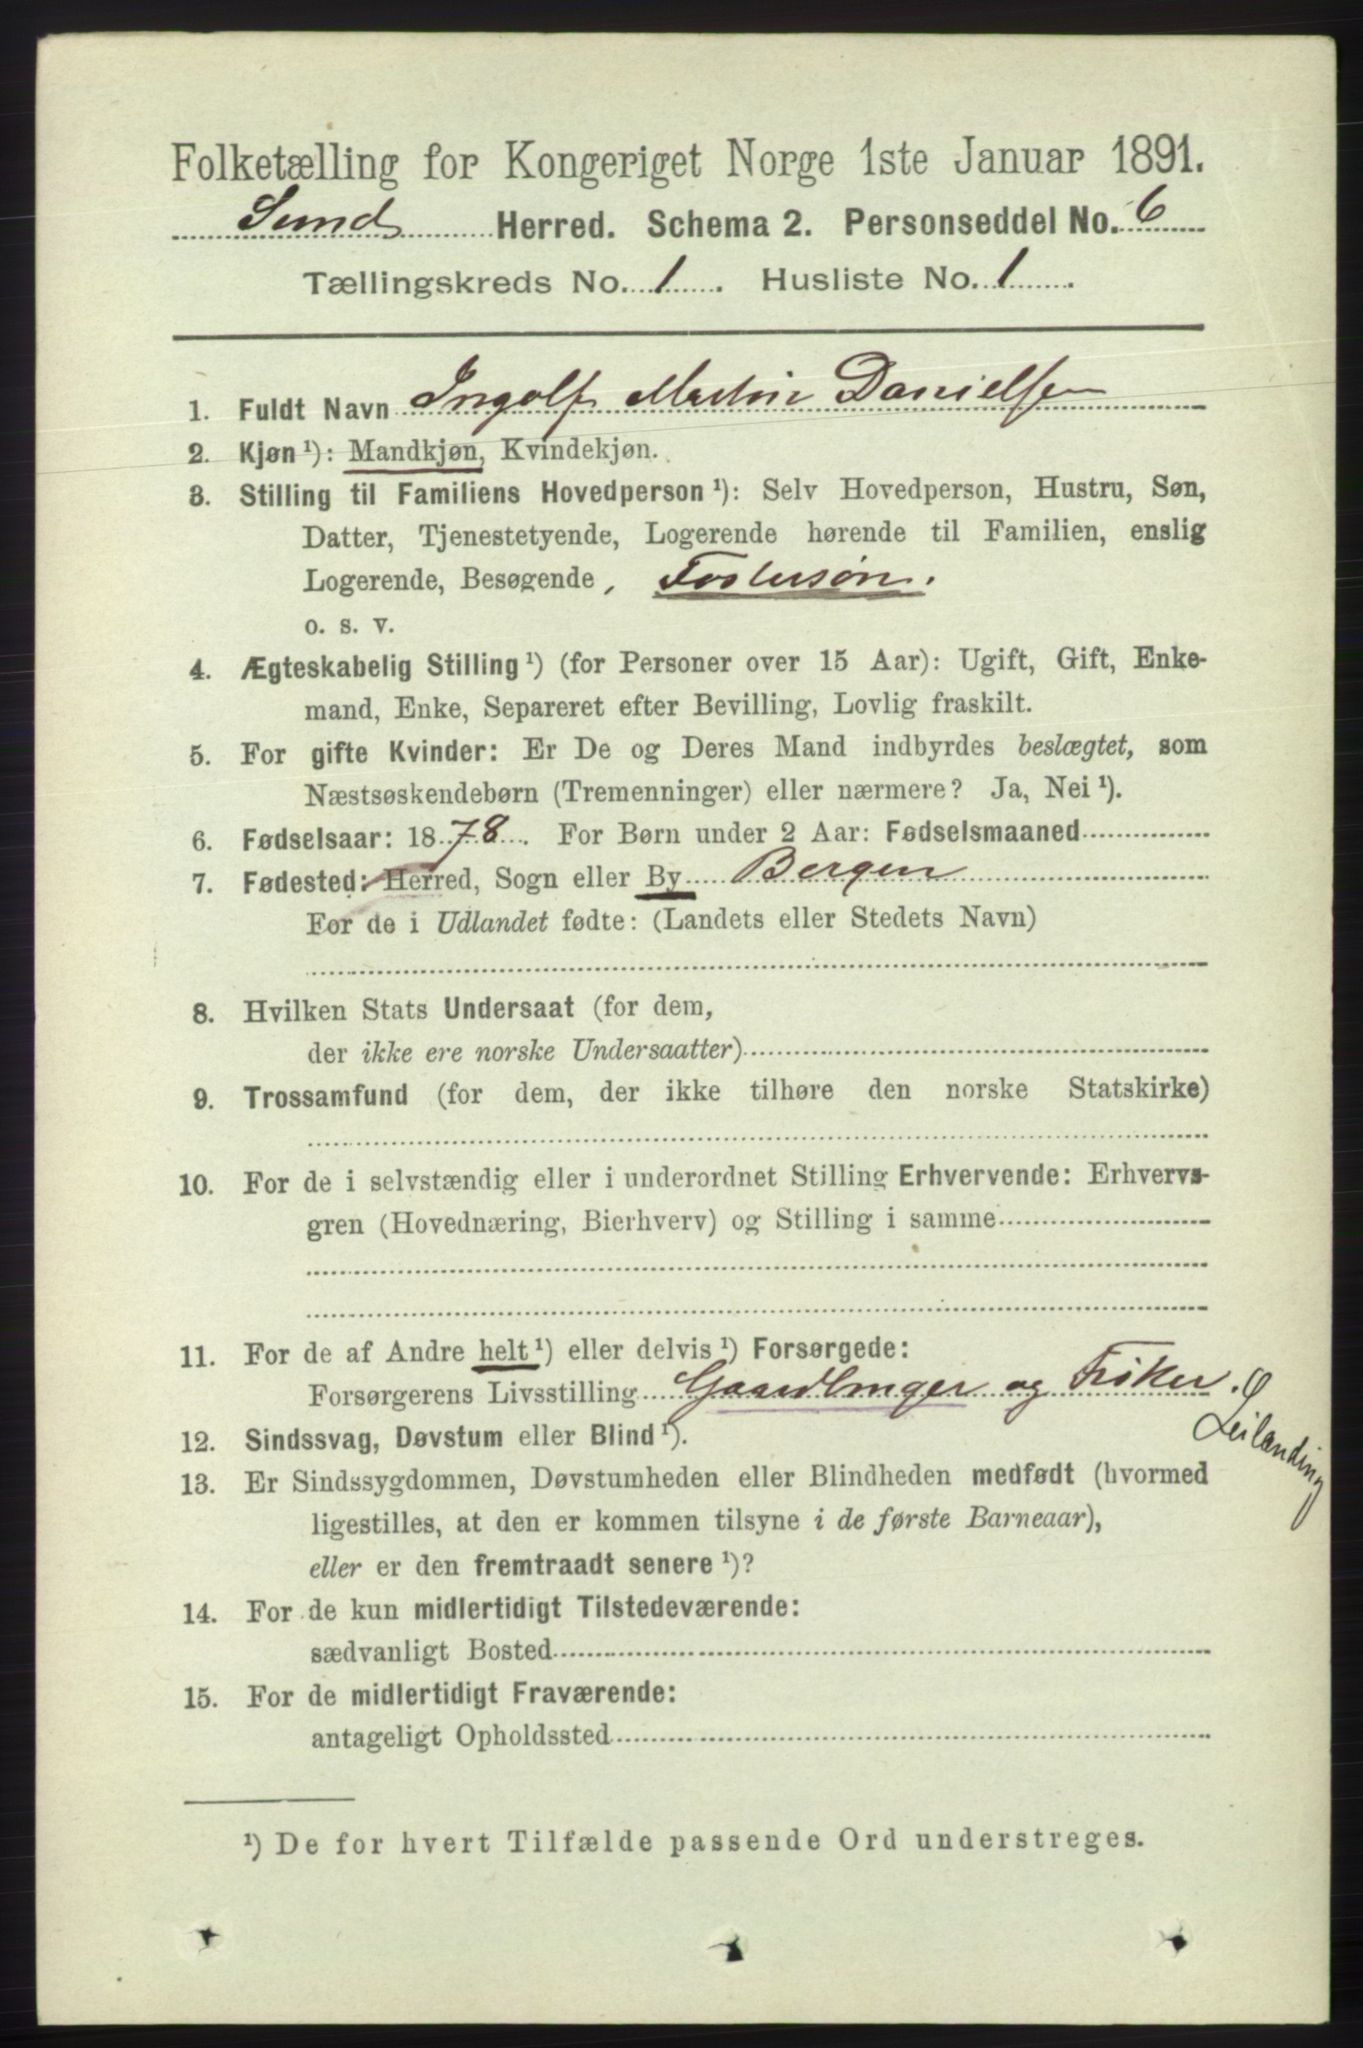 Folketælling for Kongeriget Norge 1ste Januar 1891.
Sund Herred. Schema 2. Personseddel No. 6
Tællingskreds No. 1. Husliste No. 1.
1. Fuldt Navn Ingolf Martin Danielsen
2. Kjøn ¹): Mandkjøn, Kvindekjøn.
3. Stilling til Familiens Hovedperson ¹): Selv Hovedperson, Hustru, Søn,
Datter, Tjenestetyende, Logerende hørende til Familien, enslig
Logerende, Besøgende, Fostersøn.
o. s. v.
4. Ægteskabelig Stilling ¹) (for Personer over 15 Aar): Ugift, Gift, Enke-
mand, Enke, Separeret efter Bevilling, Lovlig fraskilt.
5. For gifte Kvinder: Er De og Deres Mand indbyrdes beslægtet, som
Næstsøskendebørn (Tremenninger) eller nærmere? Ja, Nei ¹).
6. Fødselsaar: 1878. For Børn under 2 Aar: Fødselsmaaned
7. Fødested: Herred, Sogn eller By Bergen
For de i Udlandet fødte: (Landets eller Stedets Navn)
8. Hvilken Stats Undersaat (for dem,
der ikke ere norske Undersaatter)
9. Trossamfund (for dem, der ikke tilhøre den norske Statskirke)
10. For de i selvstændig eller i underordnet Stilling Erhvervende: Erhvervs-
gren (Hovednæring, Bierhverv) og Stilling i samme
11. For de af Andre helt ¹) eller delvis ¹) Forsørgede:
Forsørgerens Livsstilling Gaardbruger og Fisker.
Leilænding
12. Sindssvag, Døvstum eller Blind ¹).
13. Er Sindssygdommen, Døvstumheden eller Blindheden medfødt (hvormed
ligestilles, at den er kommen tilsyne i de første Barneaar),
eller er den fremtraadt senere ¹)?
14. For de kun midlertidigt Tilstedeværende:
sædvanligt Bosted
15. For de midlertidigt Fraværende:
antageligt Opholdssted
¹) De for hvert Tilfælde passende Ord understreges.